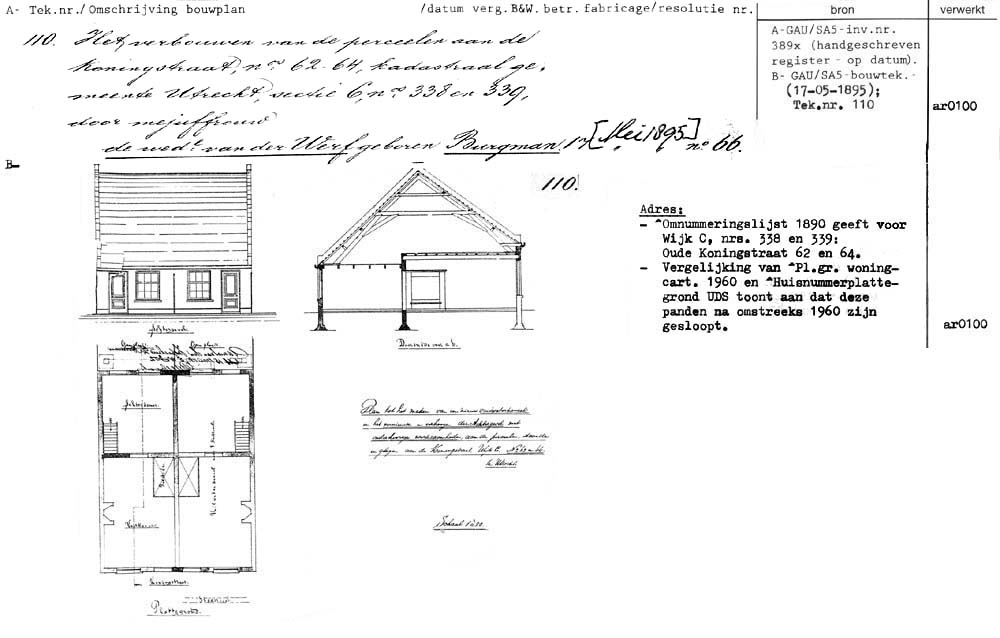 A- Tek.nr./Omschrijving bouwplan /datum verg.B&W. betr. fabricage/resolutie nr. bron verwerkt
110. Het verbouwen van de perceelen aan de
Koningstraat, nos 62-64, kadastraal ge-
meente Utrecht, sectie C, nos 338 en 339,
door mejuffrouw
de wede van der Werf geboren Burgman 17 [Mei 1895] no 66.
A-GAU/SA5-inv.nr.
389x (handgeschreven
register - op datum).
B- GAU/SA5-bouwtek.-
(17-05-1895);
Tek.nr. 110
ar0100
B-
110.
Adres:
- ^Omnummeringslijst 1890 geeft voor
Wijk C, nrs. 338 en 339:
Oude Koningstraat 62 en 64.
- Vergelijking van ^Pl.gr. woning-
cart. 1960 en ^Huisnummerplatte-
grond UDS toont aan dat deze
panden na omstreeks 1960 zijn
gesloopt.
ar0100
Achtergevel
Doorsnede over a b.
Plan tot het maken van
en het
aan de
Koningstraat Wijk C.
te Utrecht.
Schaal 1 à 100
Achterkamer
Voorkamer
Plattegrond.